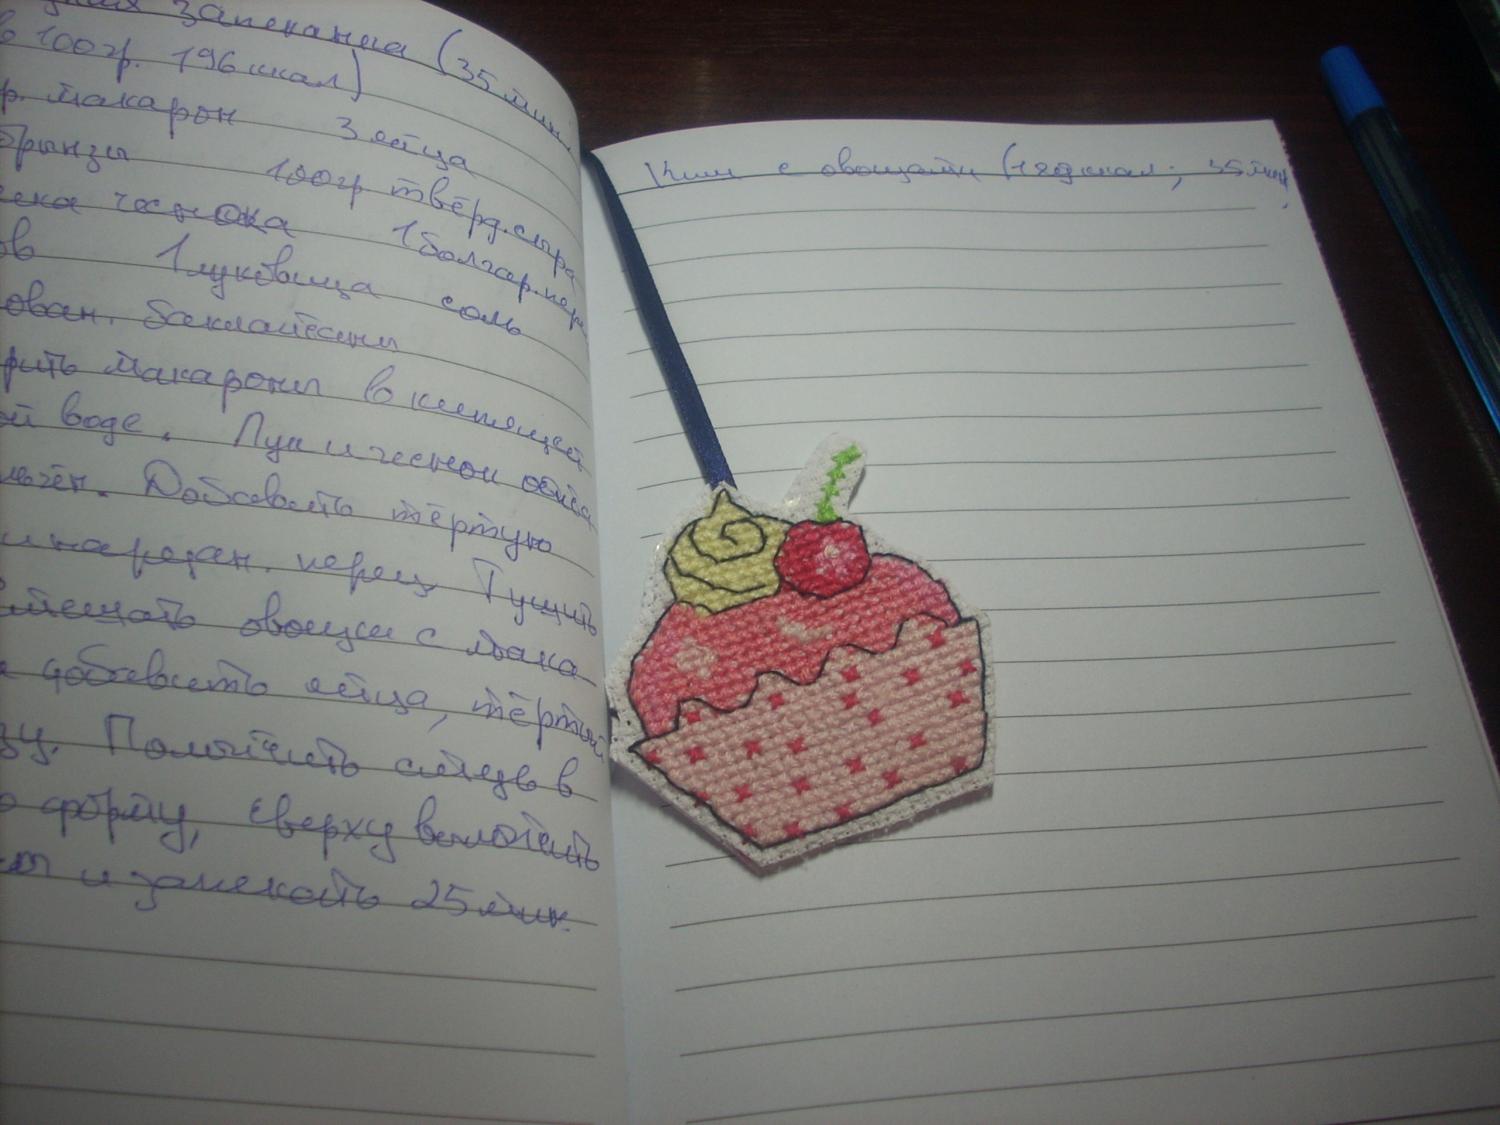 запеканка (35 мин.
в 100гр. 196 ккал)
р. макарон 3 яйца
брынзы 100гр твёрд.сыра
чеснока 1 болгар.пер
ов 1 луковица соль
ован. баклажаны
рить макароны в кипящей
ой воде. Лук и чеснок обжа
Добавить тёртую
и нарезан. перец Тушить
смешать овощи с мака
добавить яйца, тёртый
зу. Положить смесь в
форму, сверху выложить
ы и запекать 25 мин.
Киш с овощами ккал; 35 мин